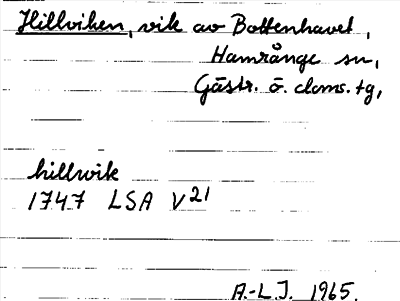 Hillviken, vik av Bottenhavet,
Hamrånge sn,
Gästr. ö. doms. tg,
hillwik
1747 LSA V21
A.-L.J. 1965.